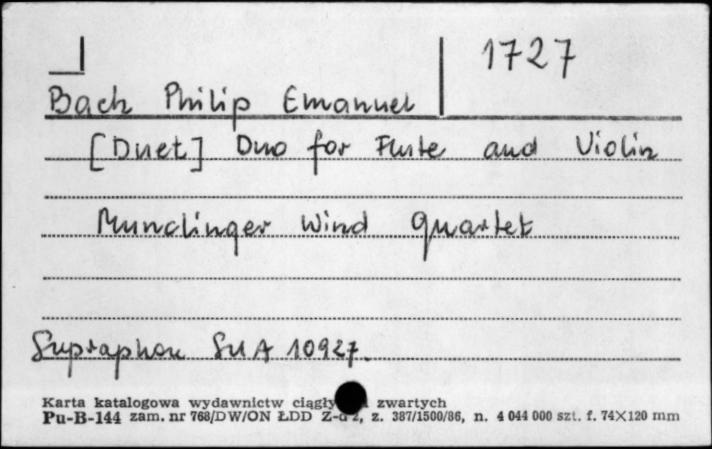 1727
Bach Philip Emanuel
[Duet] Duo for Flute and Violin
Munclinger Wind Quartet
Supraphon SUA 10927.
Karta katalogowa wydawnictw ciągły zwartych
Pu-B-144 zam. nr 768/DW/ON ŁDD z, z. 387/1500/86, n. 4 044 000 szt. f. 74×120 mm